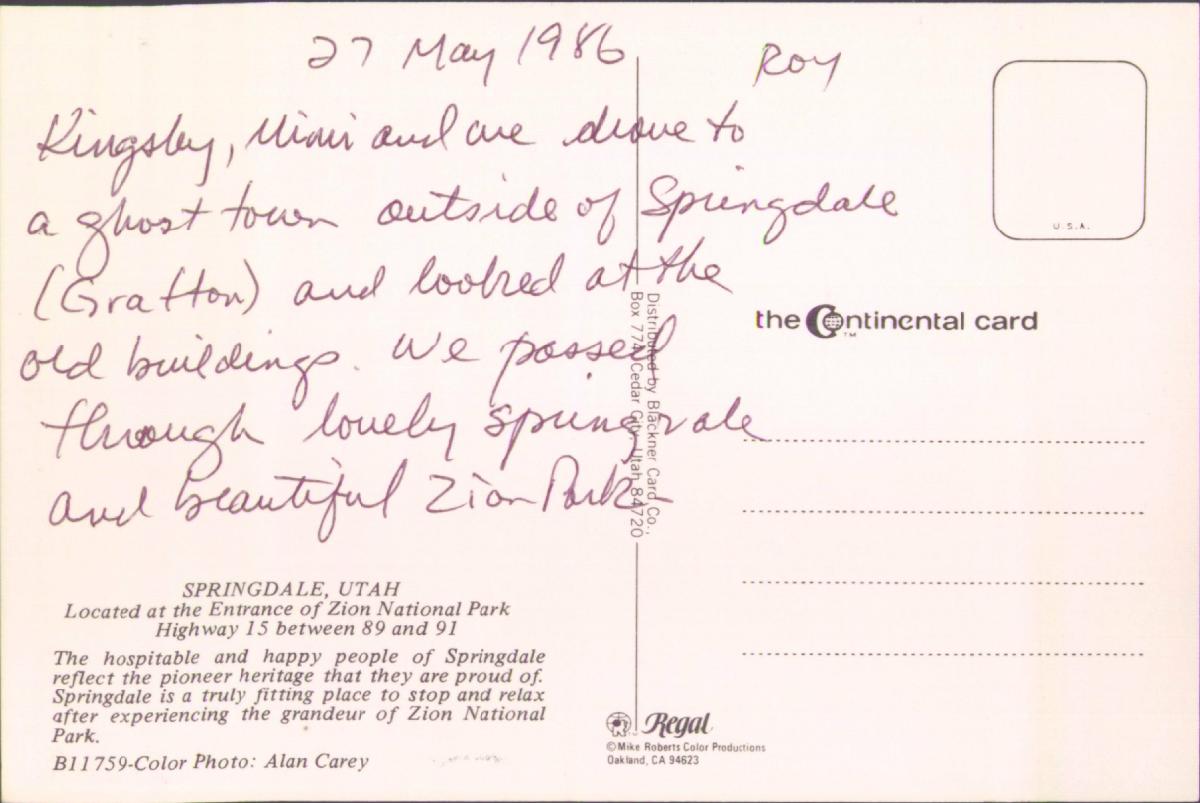 27 May 1986
Roy
Kingsby, Mimi and we drove to
a ghost town outside of Springdale
(Grafton) and looked at the
old buildings. We passed
through lovely Springvale
and beautiful Zion Park
SPRINGDALE, UTAH
Located at the Entrance of Zion National Park
Highway 15 between 89 and 91
The hospitable and happy people of Springdale
reflect the pioneer heritage that they are proud of.
Springdale is a truly fitting place to stop and relax
after experiencing the grandeur of Zion National
Park.
B11759-Color Photo: Alan Carey
Distributed by Blackner Card Co.,
Box 774, Cedar City, Utah 84720
Regal
©Mike Roberts Color Productions
Oakland, CA 94623
U.S.A.
the Continental card
TM